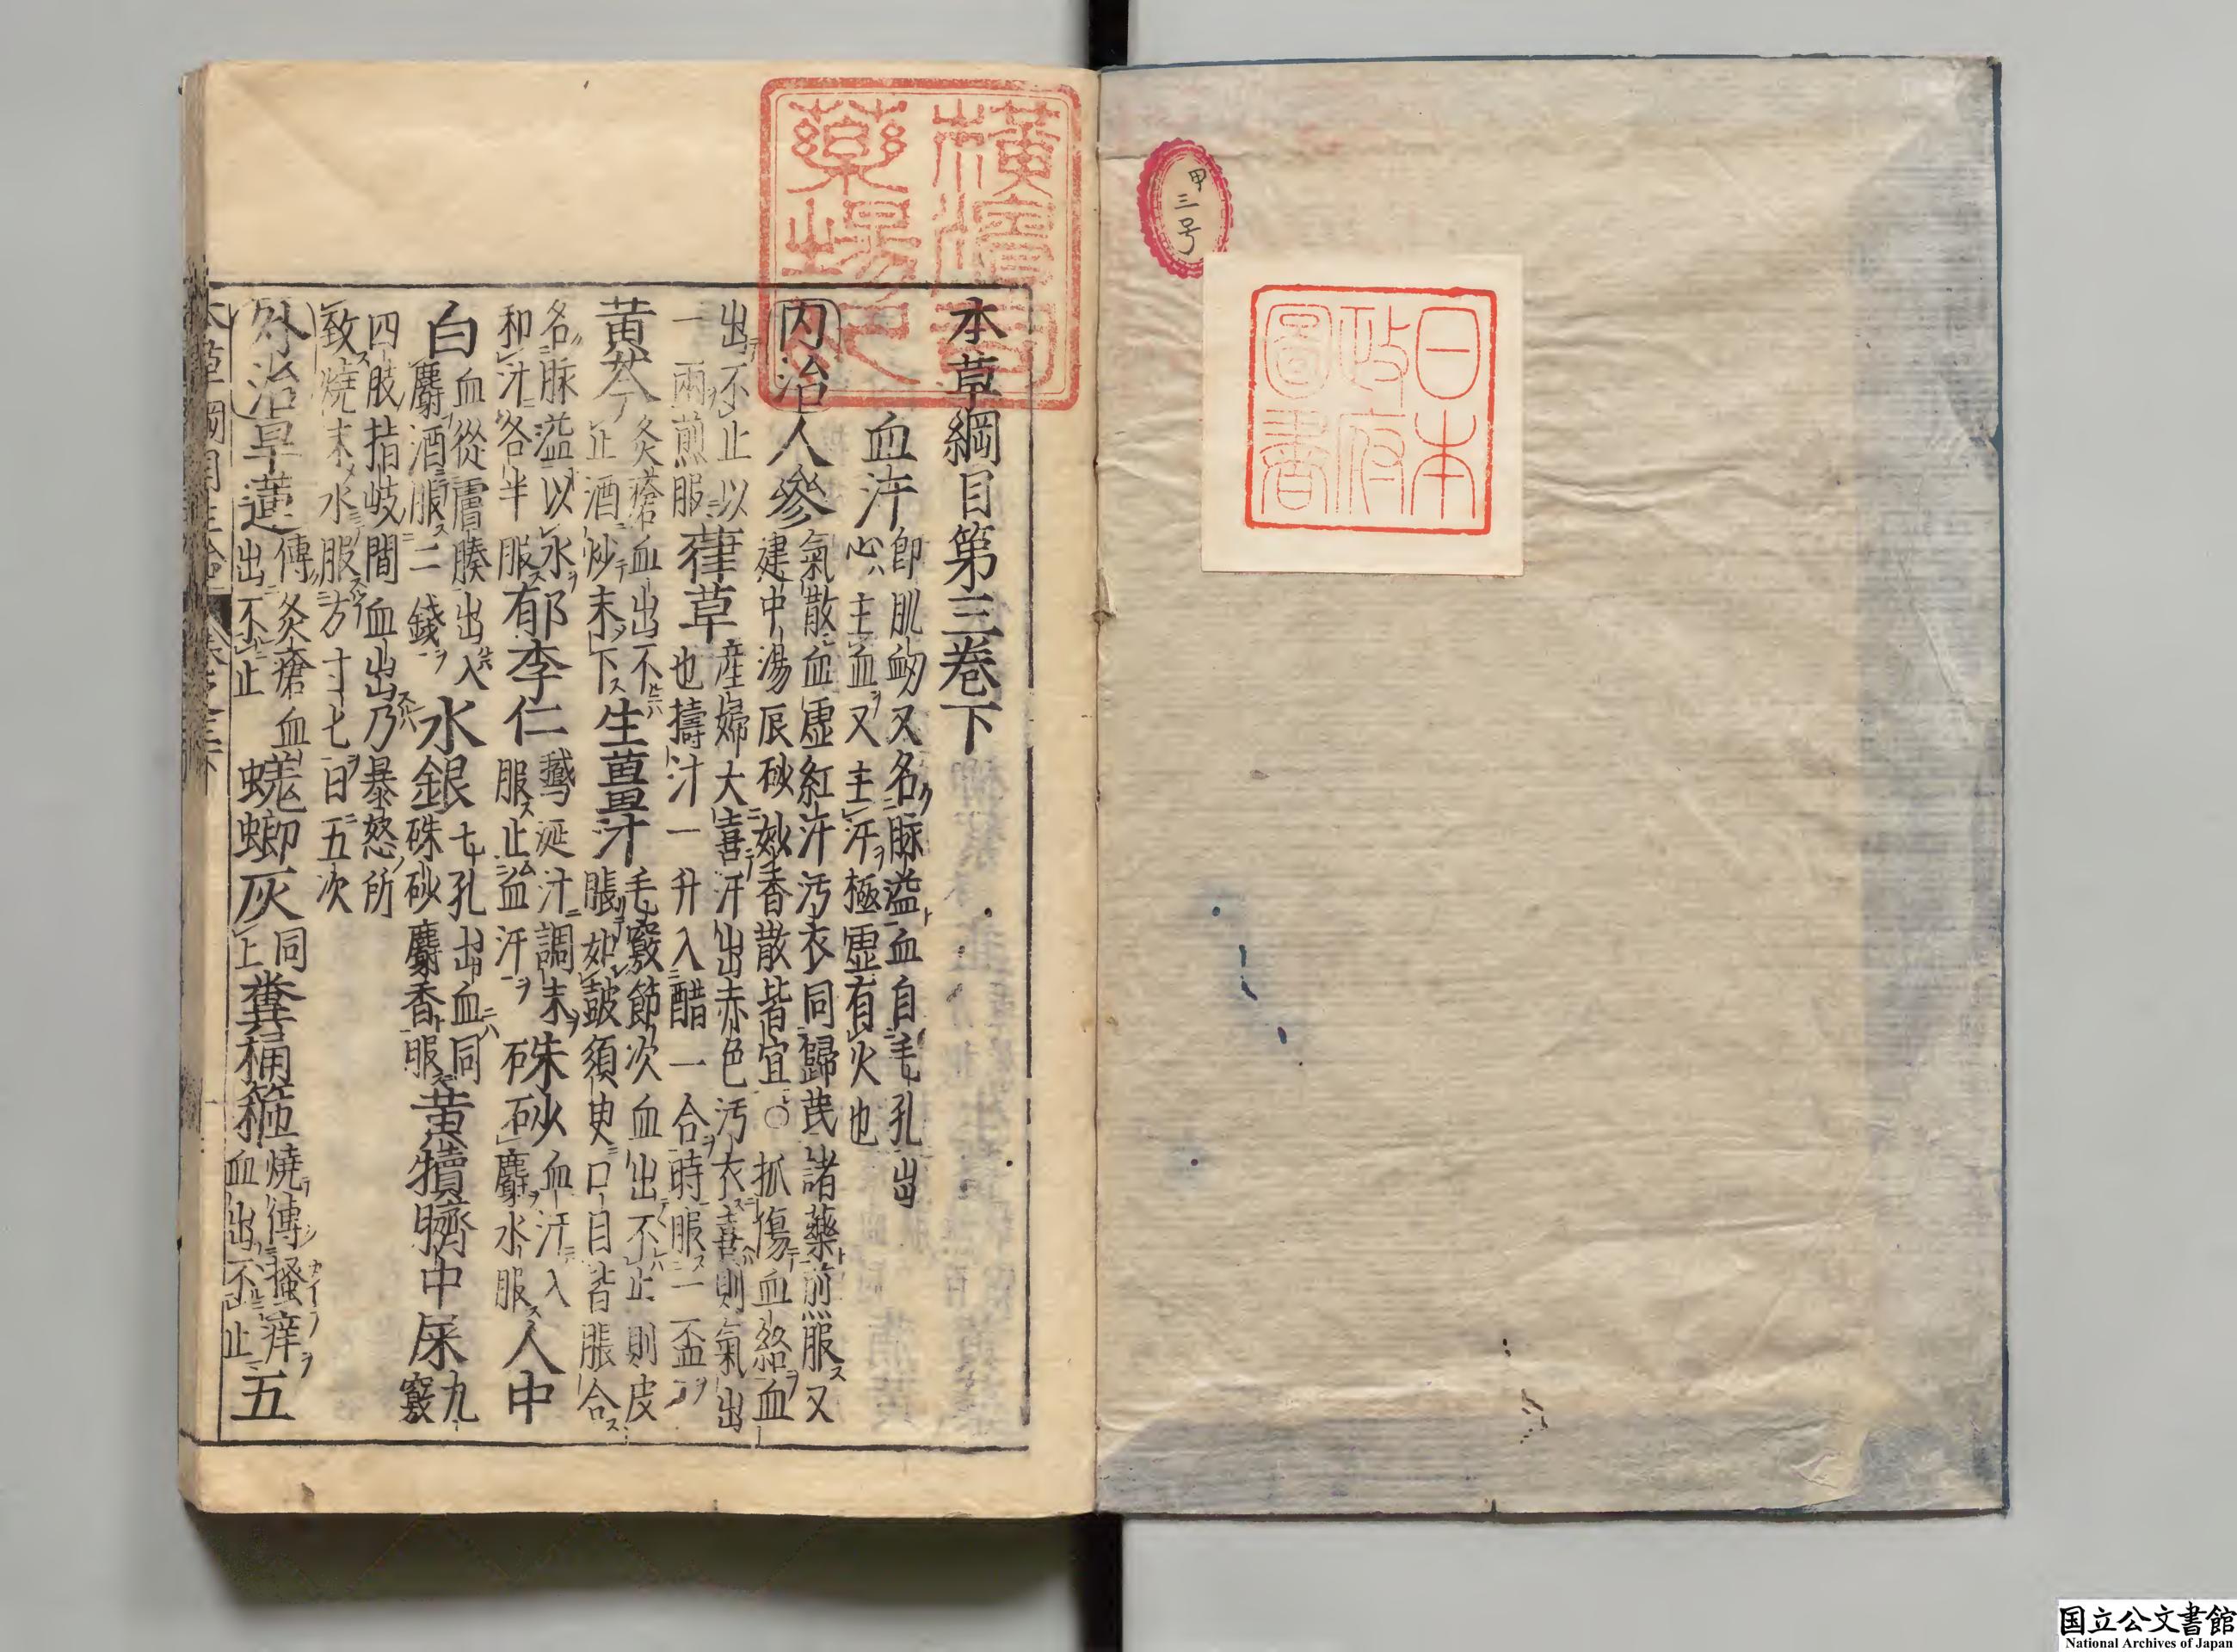 甲三号
日本
政府
圖書
橫濱司
藥場
本草綱目第三卷下
血汗 即肌衂又名脉溢血自毛孔出
心主血又主汗極虛有火也
内治 人參 氣散血虛紅汗污衣同歸芪諸藥煎服又
建中湯辰砂妙香散皆宜○抓傷血絡血
出不止以
一兩煎服 葎草 產婦大喜汗出赤色污衣喜則氣出
也擣汁一升入醋一合時服一盃
黄芩 灸瘡血出不
止酒炒末下 生薑汁 毛竅節次血出不止則皮
脹如皷須臾口目皆脹合
名脉溢以水
和汁各半服 郁李仁 鵞涎汁調末
服止盆汗 硃砂 血汗入
麝水服 人中
白 血從膚腠出入
麝酒服二錢 水銀 七孔出血同
硃砂麝香服 黄犢臍中屎 九
竅
四肢指岐間血出乃暴怒所
致燒末水服方寸匕日五次
外治 旱蓮 傅灸瘡血
出不止 蜣蜋灰 同
上 糞桶箍 燒傅搔痒
血出不止 五
本草綱目主治 卷之三下 一
国立公文書館
National Archives of Japan